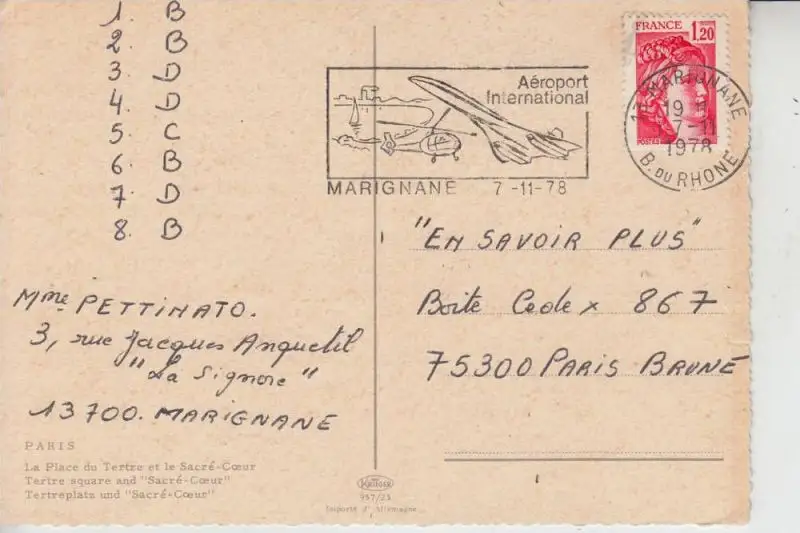 1. B
2. B
3. D
4. D
5. C
6. B
7. D
8. B
Mme PETTINATO.
3, rue Jacques Anquetil
"La Signore"
13700. MARIGNANE
PARIS
La Place du Tertre et le Sacré-Cœur
Tertre square and "Sacré-Cœur"
Tertreplatz und "Sacré-Cœur"
KRÜGER
957/23
Importé d'Allemagne
Aéroport
International
MARIGNANE 7-11-78
FRANCE
1,20
POSTES
13 MARIGNANE
19 H
7-11
1978
B. DU RHONE
"EN SAVOIR PLUS"
Boite Cedex 867
75300 PARIS BRUNE